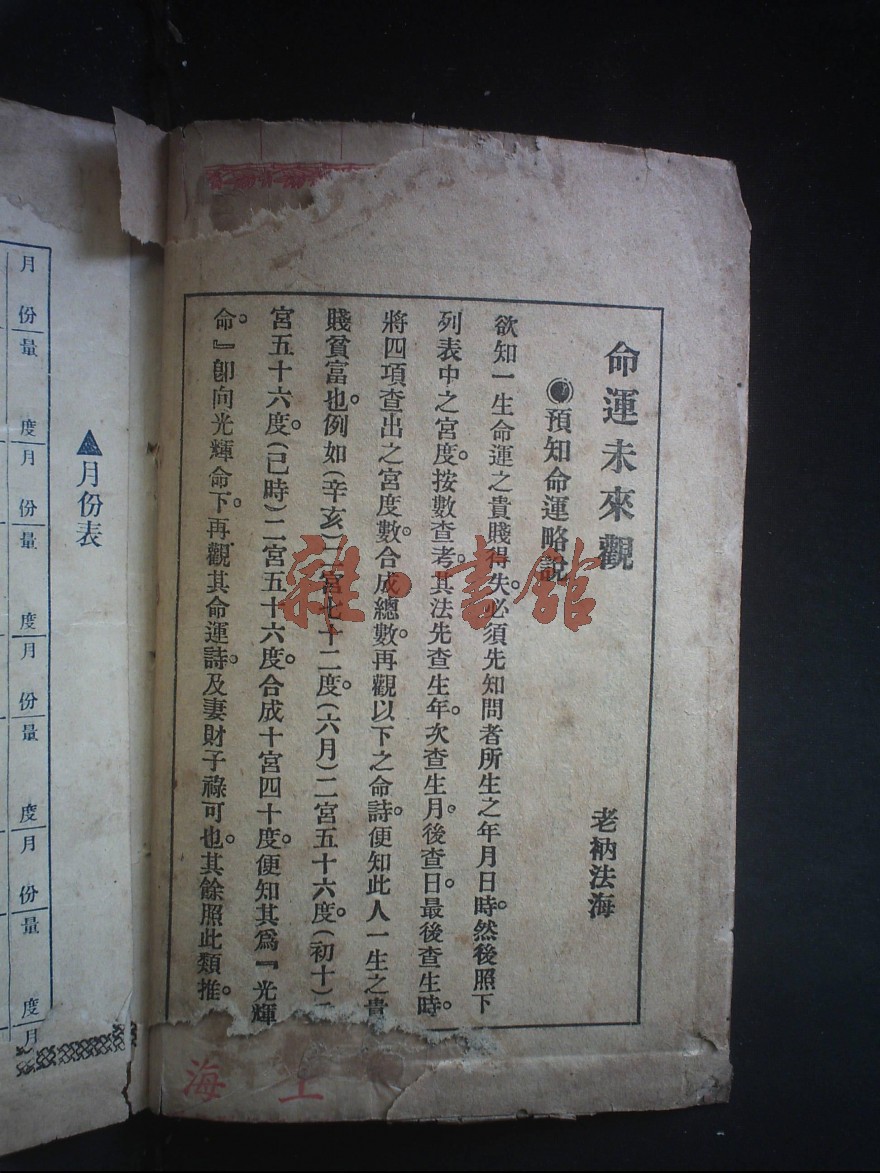 命運未來觀
老衲法海
預知命運略說
欲知一生命運之貴賤得失。必須先知問者所生之年月日時。然後照下
列表中之宮度。按數查考。其法先查生年。次查生月。後查日。最後查生時。
將四項查出之宮度數。合成總數。再觀以下之命詩。便知此人一生之貴
賤貧富也。例如(辛亥)二宮七十二度。(六月)二宮五十六度。(初十)
宮五十六度。(巳時)二宮五十六度。合成十宮四十度。便知其為『光輝
命。』即向光輝命下。再觀其命運詩。及妻財子祿可也。其餘照此類推。
▲月份表
月份量度月份量度月份量度月份量度月
上海
雜·書館